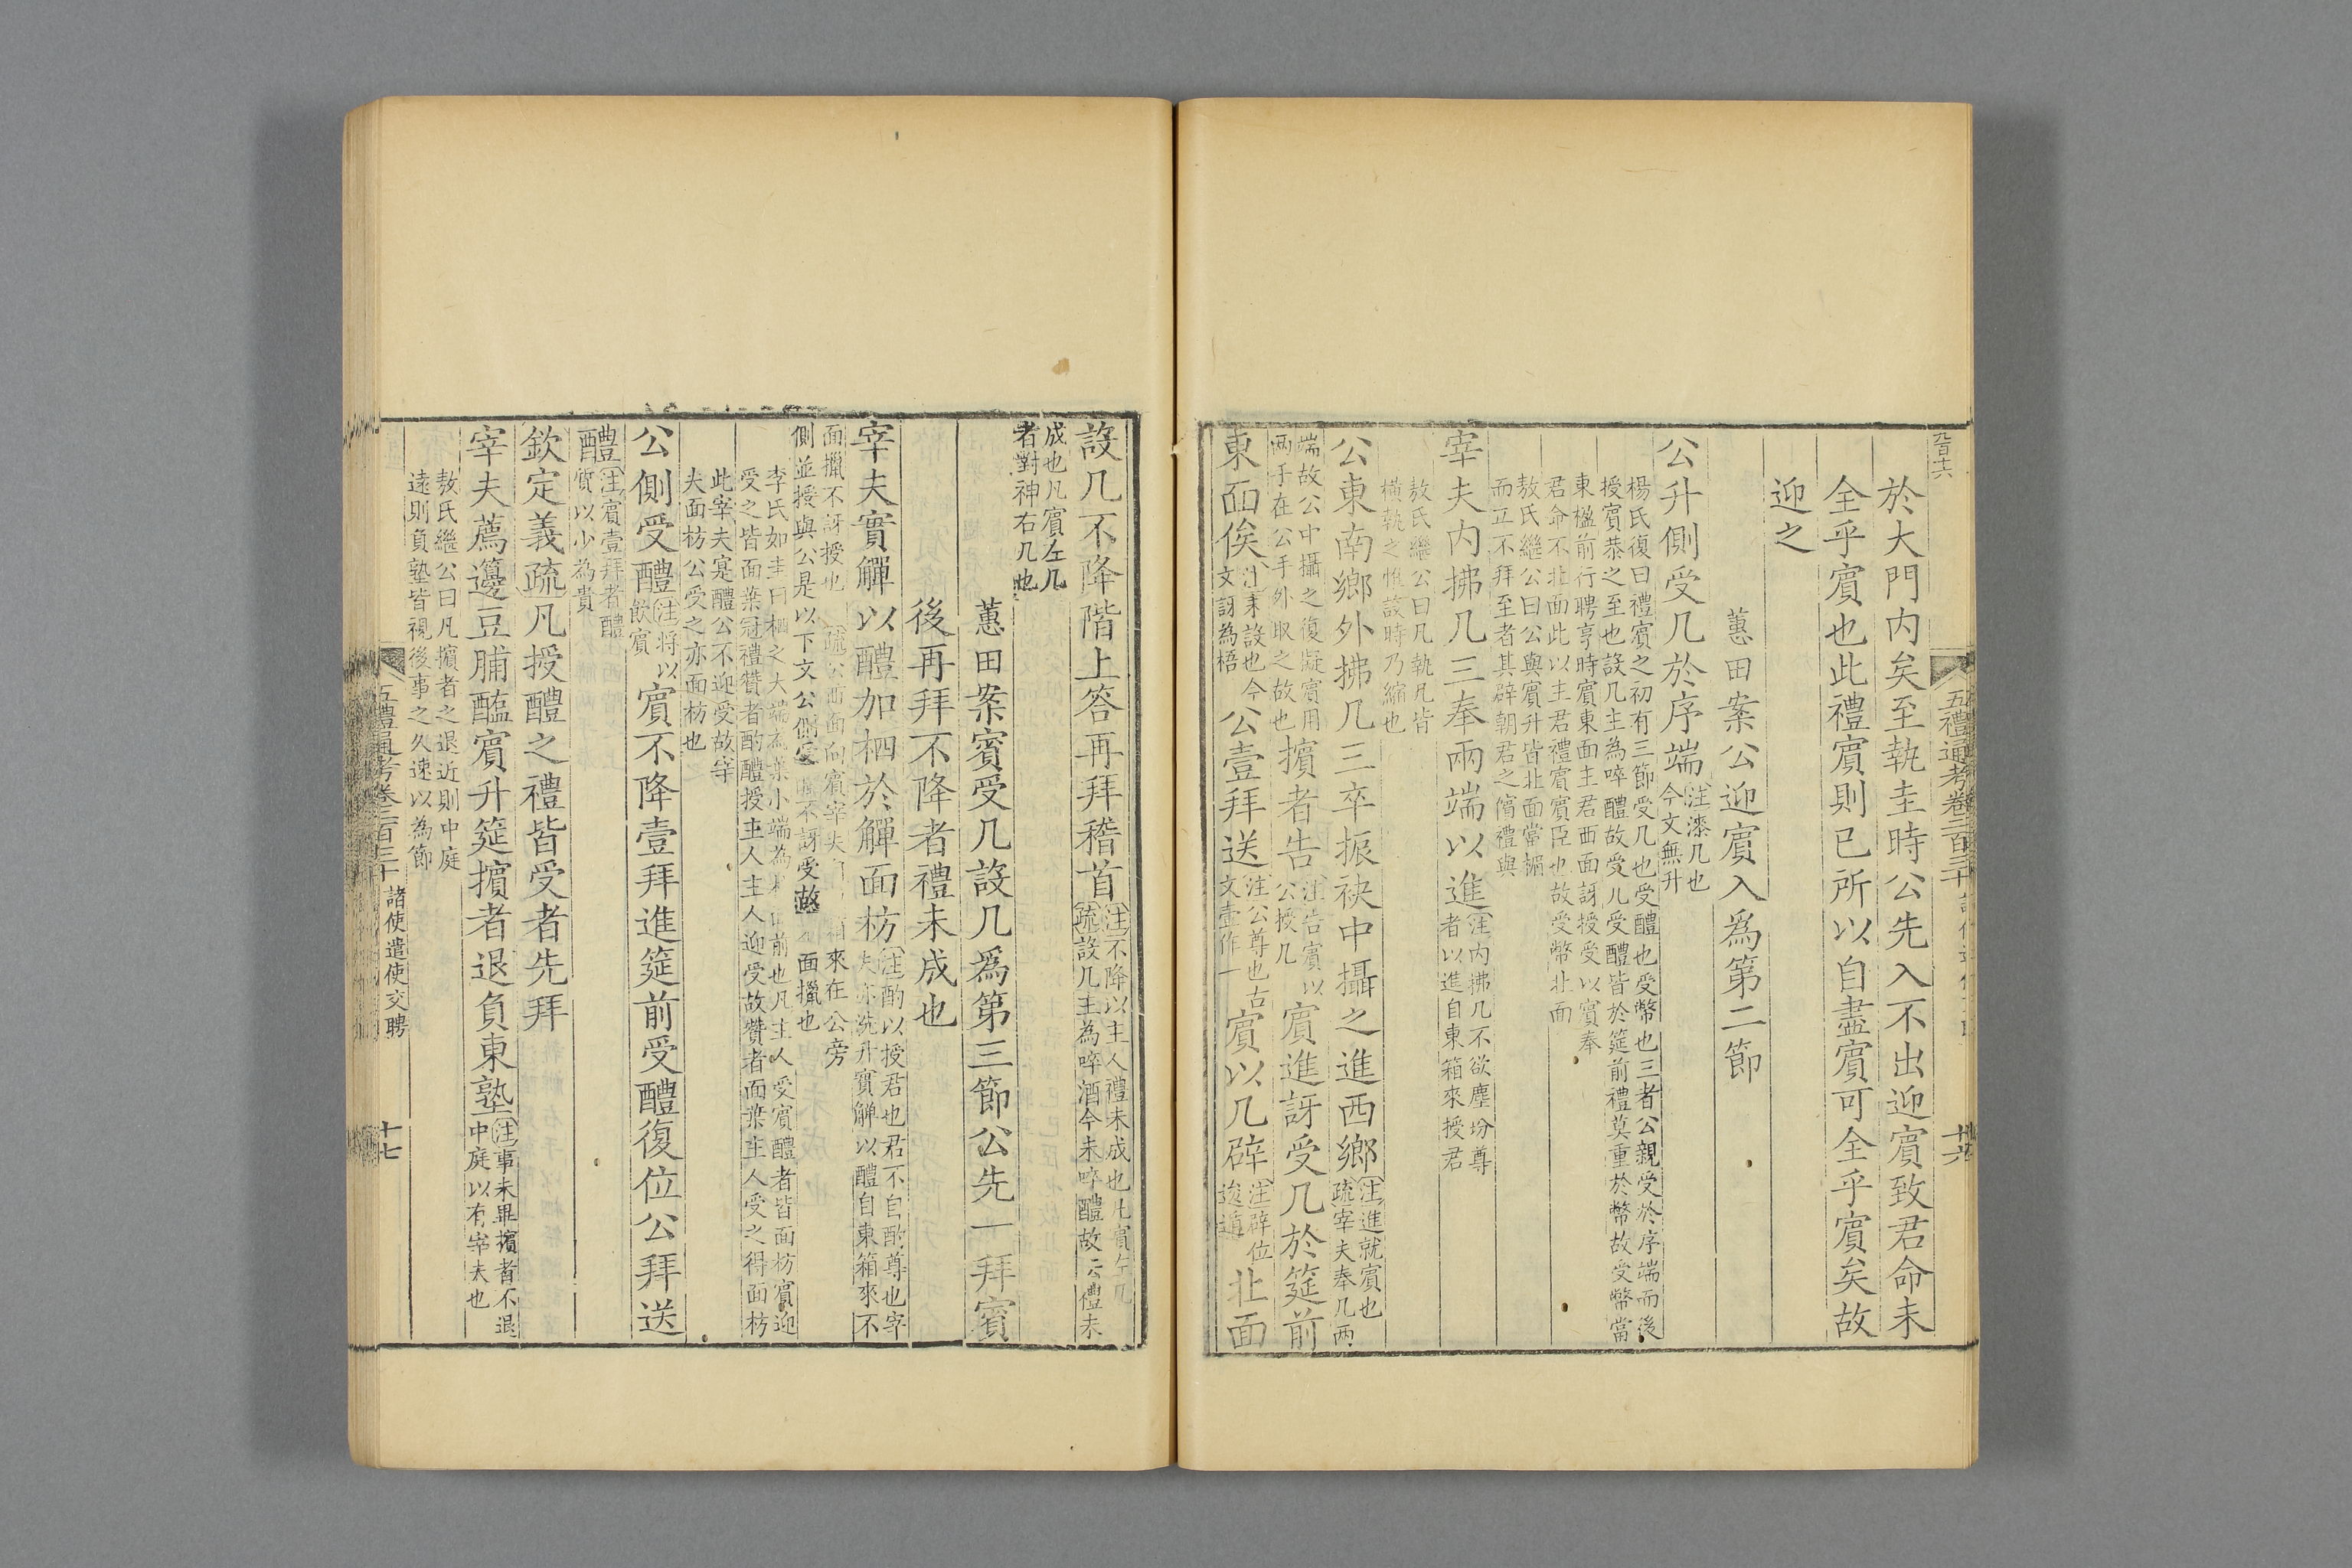 於大門内矣至執圭時公先入不出迎賓致君命未
全乎賓也此禮賓則已所以自盡賓可全乎賓矣故
迎之
蕙田案公迎賓入爲第二節
公升側受几於序端注漆几也今文無升
楊氏復曰禮賓之初有三節受几也受醴也受幣也三者公親受於序端而後
授賓恭之至也設几主為啐醴故受几受醴皆於筵前禮莫重於幣故受幣當
東楹前行聘享時賓東面主君西面訝授受以賓奉
君命不北面此以主君禮賓賓臣也故受幣北面
敖氏繼公曰公與賓升皆北面當楣
而立不拜至者其辟朝君之儐禮與
宰夫内拂几三奉兩端以進注内拂几不欲塵坋尊者以進自東箱來授君
敖氏繼公曰凡執几皆
橫執之惟設時乃縮也
公東南鄉外拂几三卒振袂中攝之進西鄉注進就賓也疏宰夫奉几两
端故公中攝之復擬賓用两手在公手外取之故也擯者告注告賓以公授几賓進訝受几於筵前
東面俟注未設也今文訝為梧公壹拜送注公尊也古文壹作一賓以几辟注辟位逡遁北面
設几不降階上答再拜稽首注不降以主人禮未成也凡賓左几疏設几主為啐酒今未啐醴故云禮未
成也凡賓左几
者對神右几也
蕙田案賓受几設几爲第三節公先一拜賓
後再拜不降者禮未成也
宰夫實觶以醴加柶於觶面枋注酌以授君也君不自酌尊也宰夫亦洗升實觶以醴自東箱來不
面擸不訝授也疏公西面向賓宰夫
側並授與公是以下文公側受
來在公旁
不訝受故
面擸也
李氏如圭曰柶之大端為葉小端為
前也凡主人受賓醴者皆面枋賓迎
受之皆面葉冠禮贊者酌醴授主人主人迎受故贊者面葉主人受之得面枋
此宰夫寔醴公不迎受故宰
夫面枋公受之亦面枋也
公側受醴注将以飲賓賓不降壹拜進筵前受醴復位公拜送
醴注賓壹拜者醴質以少為貴
欽定義疏凡授醴之禮皆受者先拜
宰夫薦籩豆脯醢賓升筵擯者退負東塾注事未畢擯者不退中庭以有宰夫也
敖氏繼公曰凡擯者之退近則中庭
遠則負塾皆視後事之久速以為節
五禮通考卷二百三十
諸使遣使交聘
十七